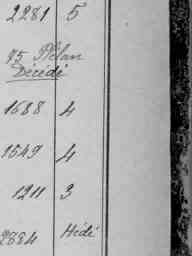 2281 5
75 Plélan
Décédé
1688 4
1549 4
1211 3
2584 Hédé